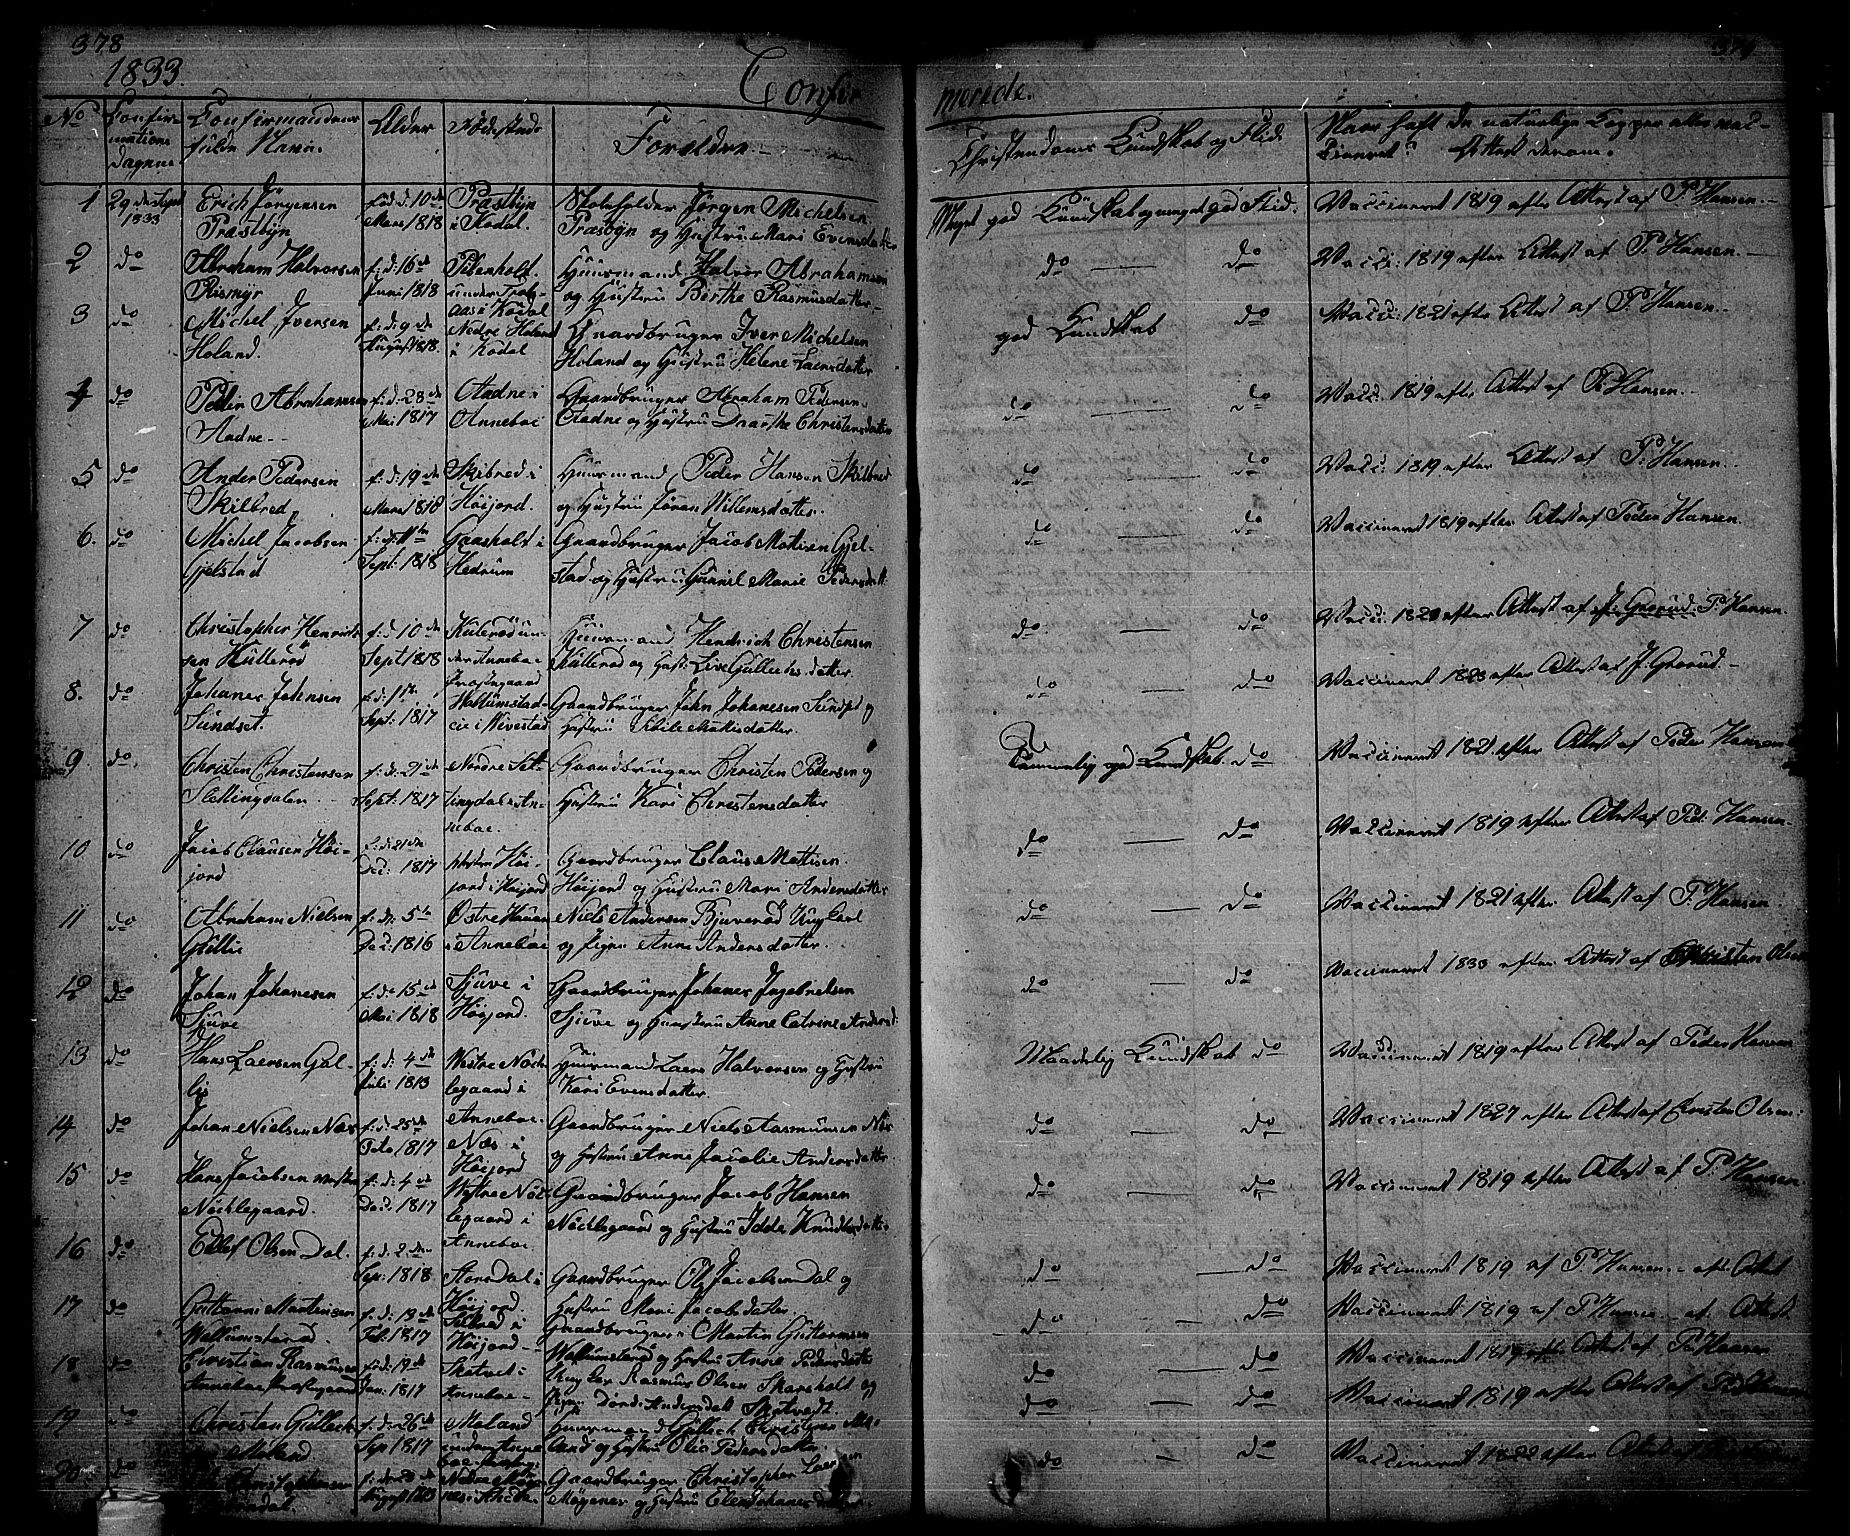 378
1833.
Confir
merede.
No
Confir-
mations
Dagene
Confirmandens
fulde Navn.
Alder
Fødested
Forældre
Christendoms Kundskab og Flid.
Have haft de naturlige Kopper eller vac-
cineret? Attest derom.
1 29de Sept 1833
Erich Jörgensen
Præstbyn
fød d: 10de
Mars 1818
Præstbyn
i Kodal.
Skoleholder Jörgen Michelsen
Præsbyn og Hustru Mari Evensdatter
Meget god Kundskab og meget god Flid.
Vaccineret 1819 efter Attest af P. Hansen.
2 do
Abraham Halvorsen
Rismyr
f: d: 16de
Juni 1818
Huusmand Halvor Abrahamsen
og Hustru Birthe Rasmusdatter
do — do
Vacci: 1819 efter Attest af P. Hansen.
3 do
Michel Iversen
Holand.
f: d: 9de
August 1818.
Nedre Holand
i Kodal
Gaardbruger Iver Michelsen
Holand og Hustru Helene Larsdatter
god Kundskab do
Vacc: 1821 efter Attest af P. Hansen.
4 do
Peder Abrahamsen
Aadne
f: d: 28de
Mai 1817
Aadne i
Anneboe
Gaardbruger Abraham Pedersen
Aadne og Hustru Dorthe Christensdatter
do — do
Vacc. 1819 efter Attest af P. Hansen.
5 do
Ander Pedersen
Skilbred
f: d: 19de
Mars 1818
Skibred i
Höijord.
Huusmand Peder Hansen Skilbred
og Hustru Jøran Willemsdatter.
do — do
Vacc: 1819 efter Attest af P. Hansen.
6. do
Michel Jacobsen
Gjelstad
Sept: 1818
Gaasholt i
Hedrum
Gaardbruger Jacob Mattisen Gjel-
stad og Hustru Gunnil Marie Pedersdatt:
do — do
Vaccineret 1819 efter Attest af Peder Hansen.
7 do
Christopher Henrik-
sen Hüllerød
f: d: 10de
Sept 1818
Kulerød un-
der Anneboe
Præstegaard
Huusmand Hendrich Christensen
Kullerød og Hust: Live Gulliches datter.
do — do
Vacc: 1820 efter Attest af J. Grorud. P. Hansen
8. do
Johanes Johnsen
Sundset.
Sept: 1817
Gaardbruger John Johanesen Sundset og
Hustru Sibile Mattisdatter.
do — do
Vaccineret 1823 efter Attest af J. Grorud
9 do
Christen Christensen
Slettingdalen
f: d: 21de
Sept: 1817
Nordre Slet-
tingdal i An-
neboe.
Gaardbruger Christen Pedersen og
Hustru Kari Christensdatter
Temmelig god Kundskab do
Vaccineret 1821 efter Attest af Peder Hansen
10 do
Jacob Clausen Höi-
jord
Dec: 1817
Höi-
jord i Höijord
Gaardbruger Claus Mattisen
Höijord og Hustru Mari Andersdatter
do — do
Vaccineret 1819 efter Attest af Ped: Hansen
11 do
Abraham Nielsen
Gullie
f: d: 5te
Dec: 1816
Østre Hauan
i Anneboe
Niels Andersen Bjuerød Ungkarl
og Pigen Anne Andersdatter.
do — do
Vaccineret 1821 efter Attest af P. Hansen.
12 do
Johan Johanesen
Sjüve
f: d: 15de
Mai 1818
Sjuve i
Höijord.
Gaardbruger Johanes Ingebretsen
Sjuve og Hustru Anne Catrine Andersd:
do — do
Vaccineret 1833 efter Attest af Christen Olsen
13 do
Hans Laersen Gal-
lis
f: d: 4de
Juli 1813
Westre Nöch-
legaard i
Anneboe
Huusmand Laers Halvorsen og Hustru
Kari Evensdatter.
Maadelig Kundskab do
Vaccineret 1819 efter Attest af Peder Hansen
14 do
Johan Nielsen Næs
f: d: 25de
1817
Næs i
Höijord
Gaardbruger Niels Aasmunsen Næs
og Hustru Anne Jacobie Andersdatter
do — do
Vaccineret 1827 efter Attest af Cristen Olsen:
15 do
Hans Jacobsen westre
Nöchlegaard.
f: d: 4de
Dec: 1817
Westre Nöch-
legaard i
Anneboe
Gaardbruger Jacob Hansen
Nöchlegaard og Hustru Idde Knudsdatter
do — do
Vaccineret 1819 efter Attest af P. Hansen.
16 do
Edlef Olsen Dal.
f: d: 2den
Sep: 1818
Storedal i
Höijord.
Gaardbruger Ole Jacobsen Dal og
Hustru Mari Jacobsdatter.
do — do
Vaccineret 1819 af P. Hansen eft: Attest
17 do
Guttormi Martensen
f: d: 19de
Feb: 1817
Höijord
Gaardbruger Martin Guttormsen
og Hustru Anne Pedersdatter
do — do
Vaccineret 1819 af P. Hansen ef: Attest.
18 do
Christian Rasmusen
Anneboe Præstegaard
fød: 19de
Jan: 1817
Skatvet i
Anneboe
Ungkarl Rasmus Olsen Skarsholt og
Pigen Dorde Andersdat Skatvedt
do — do
Vaccineret 1819 efter Attest af P. Hansen
19 do
Christen Gullich-
sen Meland
f: d: 26de
Sep 1817
Meland
under Anne
boe Præsteg:
Huusmand Gullich Christensen Me-
land og Hustru Olia Pedersdatter
do — do
Vaccineret 1819 efter Attest af P. Hansen
20 do
Christophersen
Gaardbruger Christopher Laersen
og Hustru Elen Johanesdatter.
do — do
Vaccineret 1822 efter Attest af